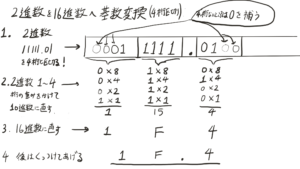 2進数を16進数へ基数変換(4桁区切)
4桁ないときは0を補う
1. 2進数
11111.01
を4桁に区切る!
0001 1111 . 0100
2. 2進数1~4
桁の重みをかけて
10進数に直す
0×8 1×8 0×8
0×4 1×4 1×4
0×2 1×2 0×2
1×1 1×1 0×1
1 15 4
3. 16進数に直す → 1 F 4
4 後はくっつけてあげる → 1 F . 4